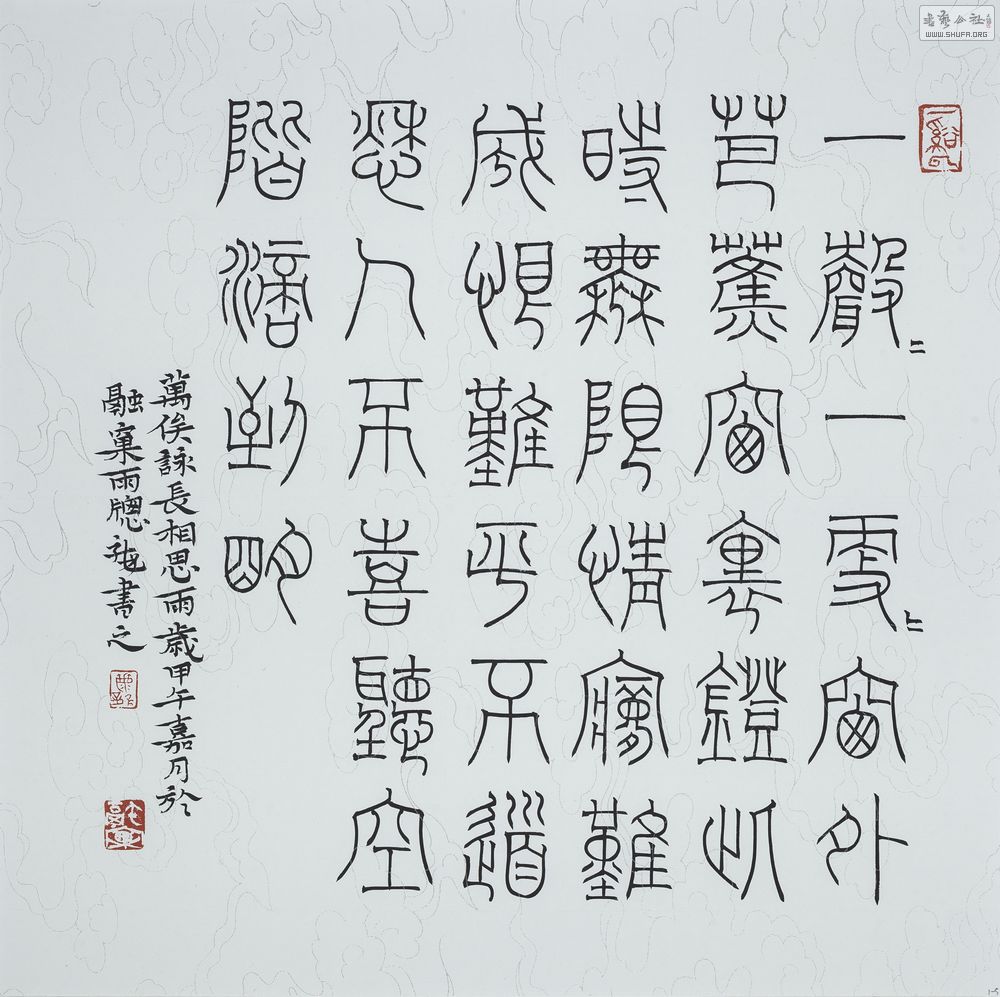 書藝公社
WWW.SHUFA.ORG
一聲〻一更〻窗外
芭蕉窗裏鐙此
時無限情寢難
成恨難平不道
愁人不喜聽空
階滴到明
萬俟詠長相思雨歲甲午嘉月於
融雨牕書之